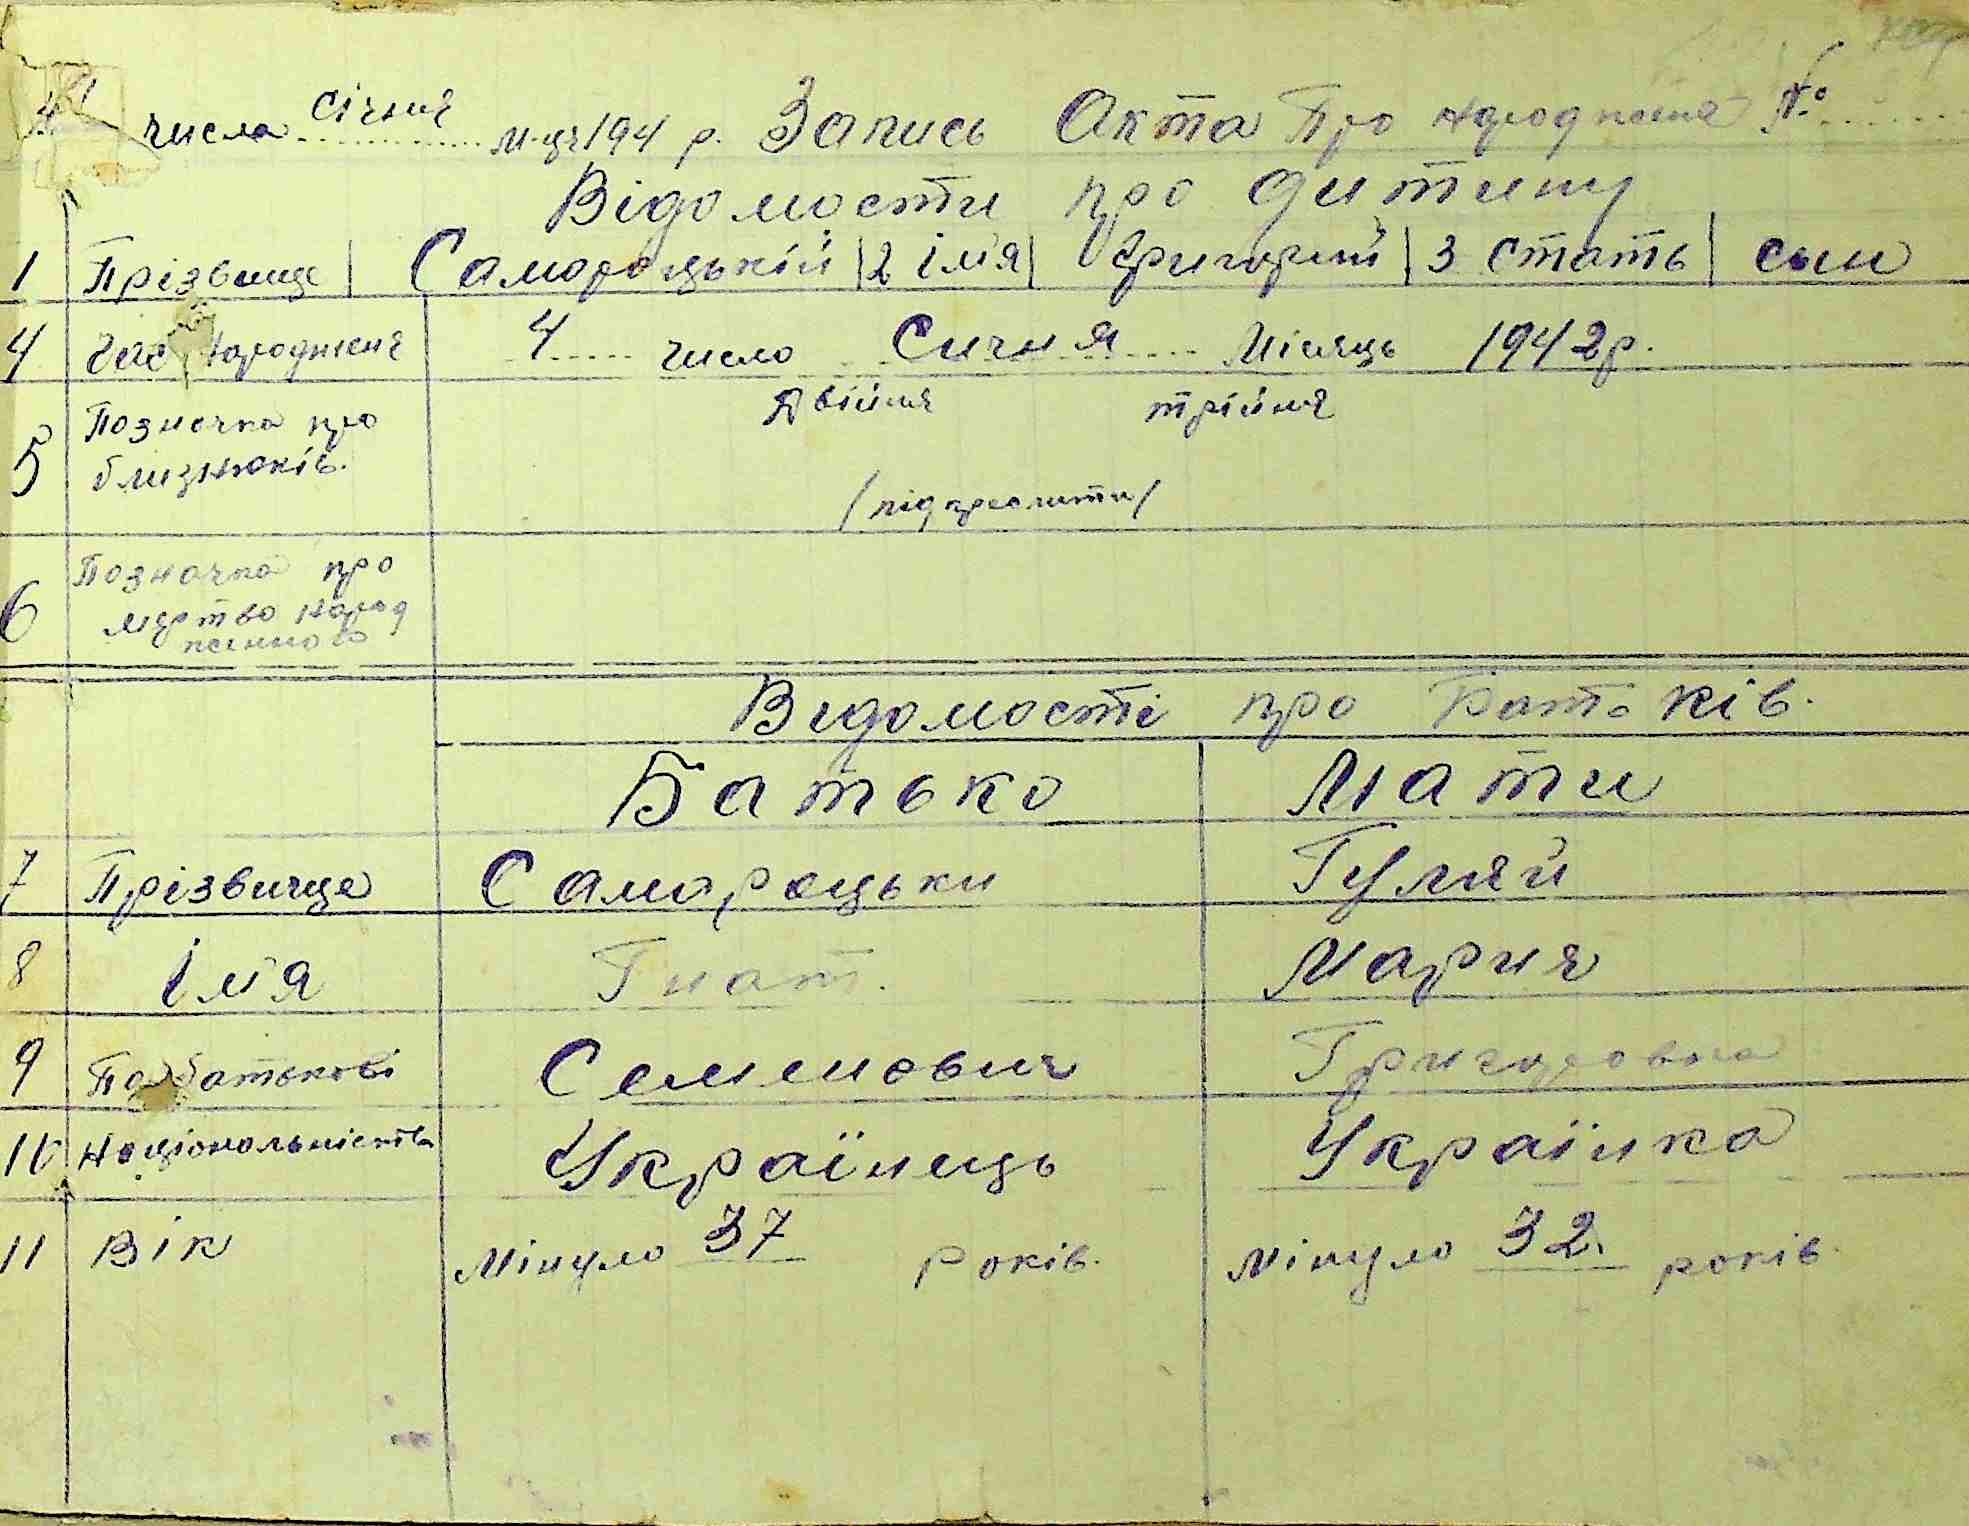 числа січня м-ця 194 р. Запись Акта Про народження №
Відомости про дитину
1 Прізвище Самороцькій 2 імя Григорий 3 стать сын
4 Час народженя 4 число Сичня Місяць 1942 р.
5 Позначка про близнюків. Двійня трійня
/підкреслити/
6 Позначка про
мертво народ
женного
Відомості про Батьків.
Батько Мати
7 Прізвище Самороцьки Гуляй
8 імя Гнат. Мария
9 По батькові Семенович Григоровна
10 Національність Українець Українка
11 Вік Минуло 37 років. Минуло 32. років.